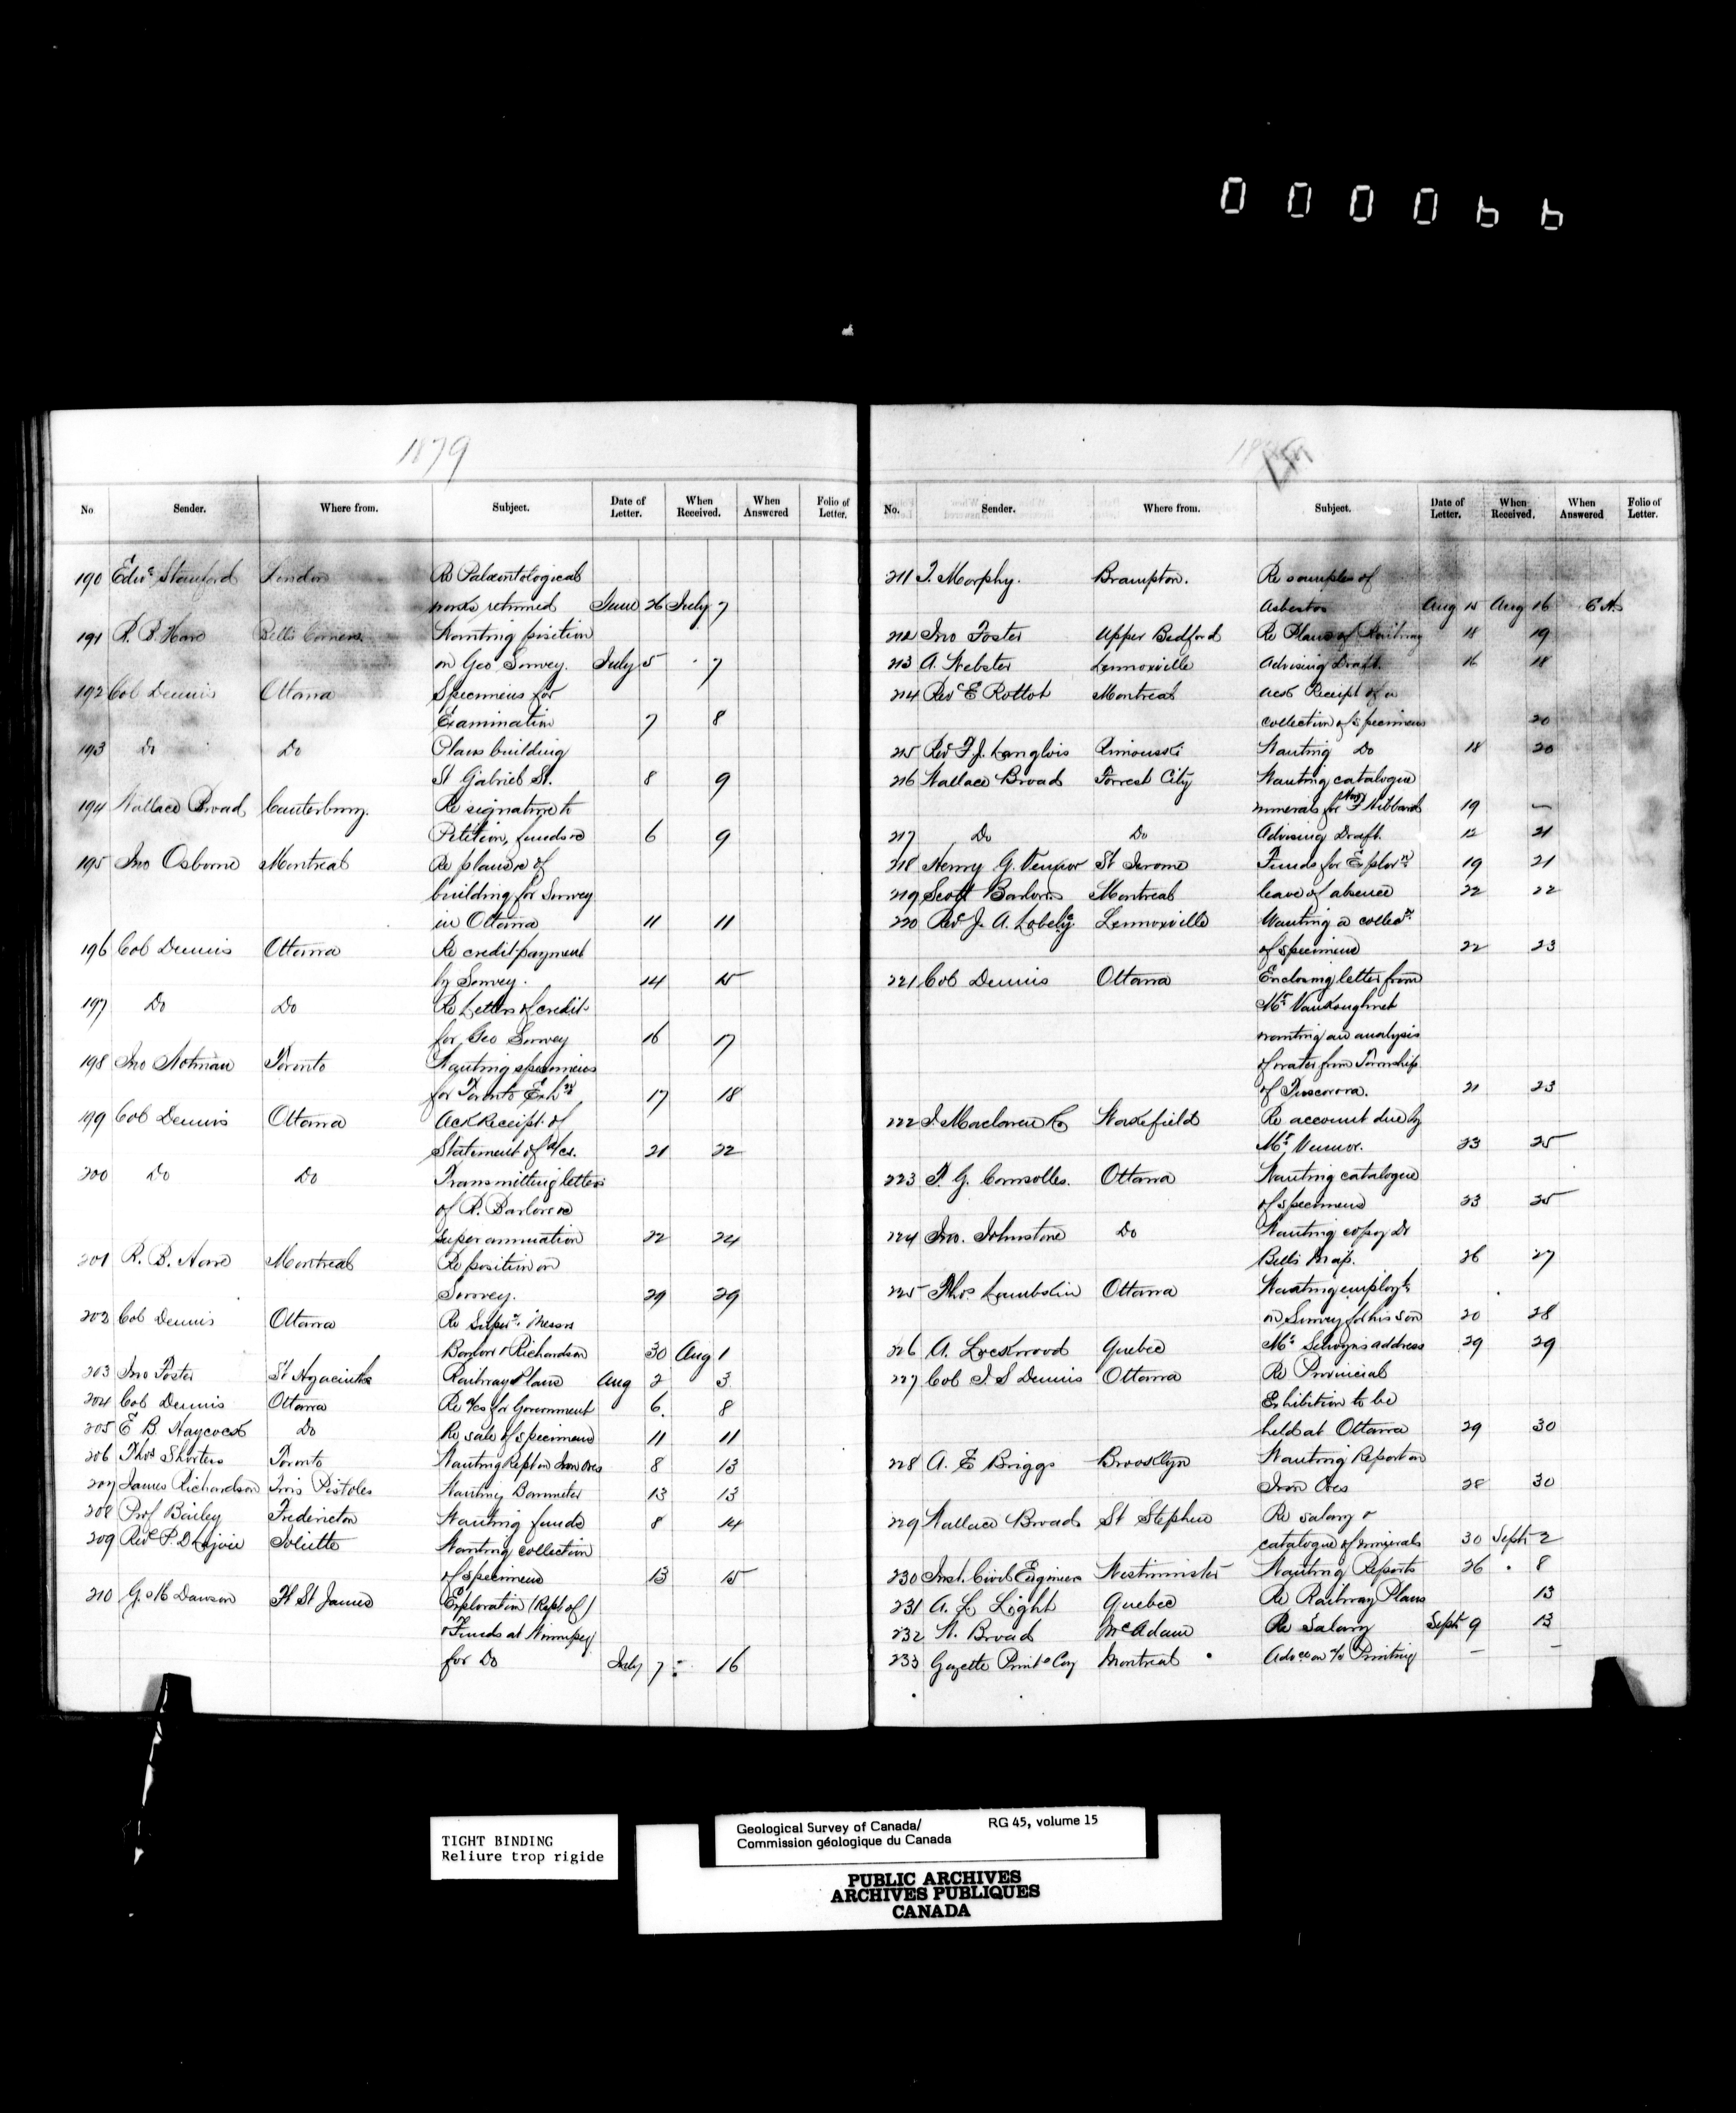 000066
1879
No Sender. Where from. Subject. Date of Letter. When Received. When Answered Folio of Letter.
190 Edwd Stanford London Re Palæontological
works returned June 26 July 7
191 R. B. Hare Bells Corners Wanting position
on Geo Survey. July 5 7
192 Col Dennis Ottawa Specimens for
Examination 7 8
193 Do Do Plans building
St Gabriel St. 8 9
194 Wallace Broad Canterbury. Re signature to
Petition, funds &c 6 9
195 Jno Osborne Montreal Re plans &c of
building for Survey
in Ottawa 11 11
196 Col Dennis Ottawa Re credit payment
by Survey. 14 15
197 Do Do Re Letters of credit
for Geo Survey 16 17
198 Jno Notman Toronto Wanting specimens
for Toronto Exhn 17 18
199 Col Dennis Ottawa Ack Receipt of
Statement of a/cs. 21 22
200 Do Do Transmitting letters
of R. Barlow re
superannuation 22 24
201 R. B. Hare Montreal Re position on
Survey. 29 29
202 Col Dennis Ottawa Re Supern Messrs
Barlow & Richardson 30 Aug 1
203 Jno Foster St Hyacinthe Railway Plans Aug 2 3
204 Col Dennis Ottawa Re a/cs for Government 6. 8
205 E B. Haycock Do Re sale of specimens 11 11
206 Thos Shorters Toronto Wanting Rept on Iron Ores 8 13
207 James Richardson Trois Pistoles Wanting Barometer 13 13
208 Prof Bailey Fredericton Wanting funds 8 14
209 Revd P. D Lajoie Joliette Wanting collection
of specimens 13 15
210 G. M Dawson Ft St James Exploration (Rept of)
& Funds at Winnipeg
for Do July 7 16
No. Sender. Where from. Subject. Date of Letter. When Received. When Answered Folio of Letter.
211 T. Morphy. Brampton. Re samples of
Asbestos Aug 15 Aug 16
212 Jno Foster Upper Bedford Re Plans of Railway 18 19
213 A. Webster Lennoxville Advising Draft. 16 18
214 Revd E Rottot Montreal Ack Receipt of a
collection of specimens 20
215 Revd F. J. Langlois Rimouski Wanting Do 18 20
216 Wallace Broad Forrest City Wanting catalogue
minerals for Hon F Hibbard 19 —
217 Do Do Advising Draft. 12 21
218 Henry G. Vennor St Jerome Funds for Explorn 19 21
219 Scott Barlow Montreal leave of absence 22 22
220 Revd J. A. Lobley Lennoxville Wanting a collecn
of specimens 22 23
221 Col Dennis Ottawa Enclosing letter from
Mr VanKoughnet
wanting an analysis
of water from Township
of Tuscorora. 21 23
222 J. Maclaren & Co Wakefield Re account due by
Mr Vennor. 23 25
223 T. G. Coursolles. Ottawa Wanting catalogue
of specimens 23 25
224 Jno. Johnstone Do Wanting copy Dr
Bells Map. 26 27
225 Thos. Lambskin Ottawa Wanting employt
on Survey for his son 20 28
226 A. Lockwood Quebec Mr Selwyns address 29 29
227 Col J. S Dennis Ottawa Re Provincial
Exhibition to be
held at Ottawa 29 30
228 A. E Briggs Brooklyn Wanting Report on
Iron Ores 28 30
229 Wallace Broad St Stephen Re salary &
catalogue of minerals 30 Septr 2
230 Inst. Civil Engineers Westminster Wanting Reports 26 8
231 A. L Light Quebec Re Railway Plans 13
232 W. Broad McAdam Re Salary Septr 9 13
233 Gazette Printg Coy Montreal Advce on a/c Printing — —
TIGHT BINDING
Reliure trop rigide
Geological Survey of Canada/ RG 45, volume 15
Commission géologique du Canada
PUBLIC ARCHIVES
ARCHIVES PUBLIQUES
CANADA